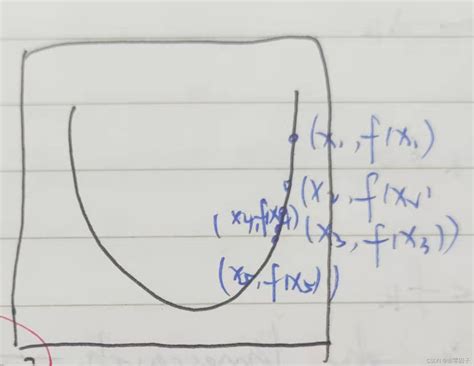 (x₁,f(x₁)
(x₂,f(x₂)
(x₄,f(x₄)
(x₃,f(x₃))
(x₅,f(x₅))